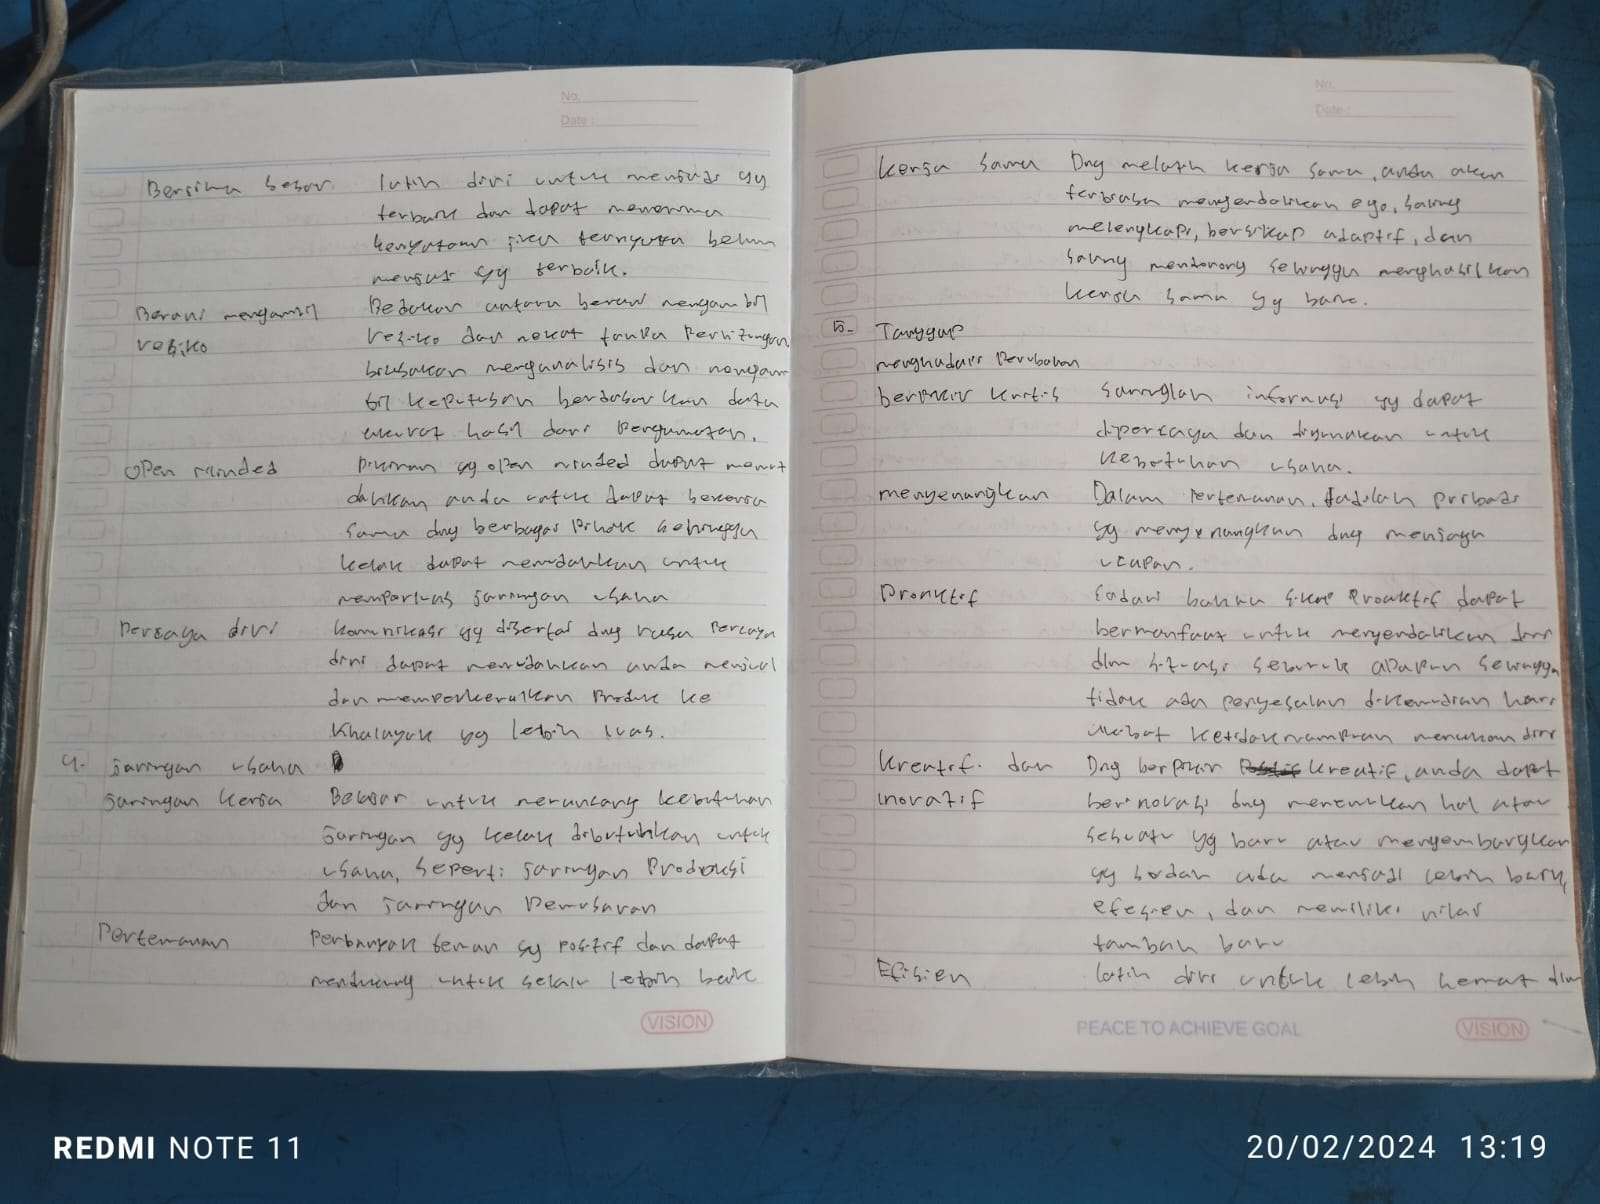 No.
Date :
Bersikap besar latih diri untuk menjadi yg
terbaik dan dapat menerima
kenyataan jika ternyata belum
menjadi yg terbaik.
Berani mengambil Bedakan antara berani mengambil
resiko resiko dan nekat tanpa Perhitungan
biasakan menganalisis dan mengam
bil keputusan berdasarkan data
akurat hasil dari Pengamatan.
Open minded Pikiran yg open minded dapat memu
dahkan anda untuk dapat bekerja
sama dng berbagai Pihak sehingga
kelak dapat memudahkan untuk
memperluas jaringan usaha
Percaya diri komunikasi yg disertai dng rasa Percaya
diri dapat memudahkan anda menjual
dan memperkenalkan Produk ke
Khalayak yg lebih luas.
4. jaringan usaha
jaringan kerja Belajar untuk merancang kebutuhan
jaringan yg kelak dibutuhkan untuk
usaha, seperti jaringan Produksi
dan jaringan Pemasaran
Pertemanan Perbanyak teman yg positif dan dapat
mendukung untuk selalu lebih baik
VISION
No.
Date :
Kerja sama Dng melatih kerja sama, anda akan
terbiasa mengendalikan ego, saling
melengkapi, bersikap adaptif, dan
saling mendorong sehingga menghasilkan
kerja sama yg baik.
5. Tanggap
menghadapi Perubahan
berpikir kritis saringlah informasi yg dapat
dipercaya dan digunakan untuk
kebutuhan usaha.
menyenangkan Dalam Pertemanan, jadilah pribadi
yg menyenangkan dng menjaga
ucapan.
Proaktif Sadari bahwa sikap Proaktif dapat
bermanfaat untuk mengendalikan diri
dlm situasi seburuk apapun sehingga
tidak ada penyesalan dikemudian hari
akibat ketidakmampuan menahan diri
Kreatif dan Dng berpikir kreatif, anda dapat
inovatif berinovasi dng menemukan hal atau
sesuatu yg baru atau mengembangkan
yg sudah ada menjadi lebih baik,
efesien, dan memiliki nilai
tambah baru
Efisien latih diri untuk lebih hemat dlm
PEACE TO ACHIEVE GOAL
VISION
REDMI NOTE 11
20/02/2024 13:19